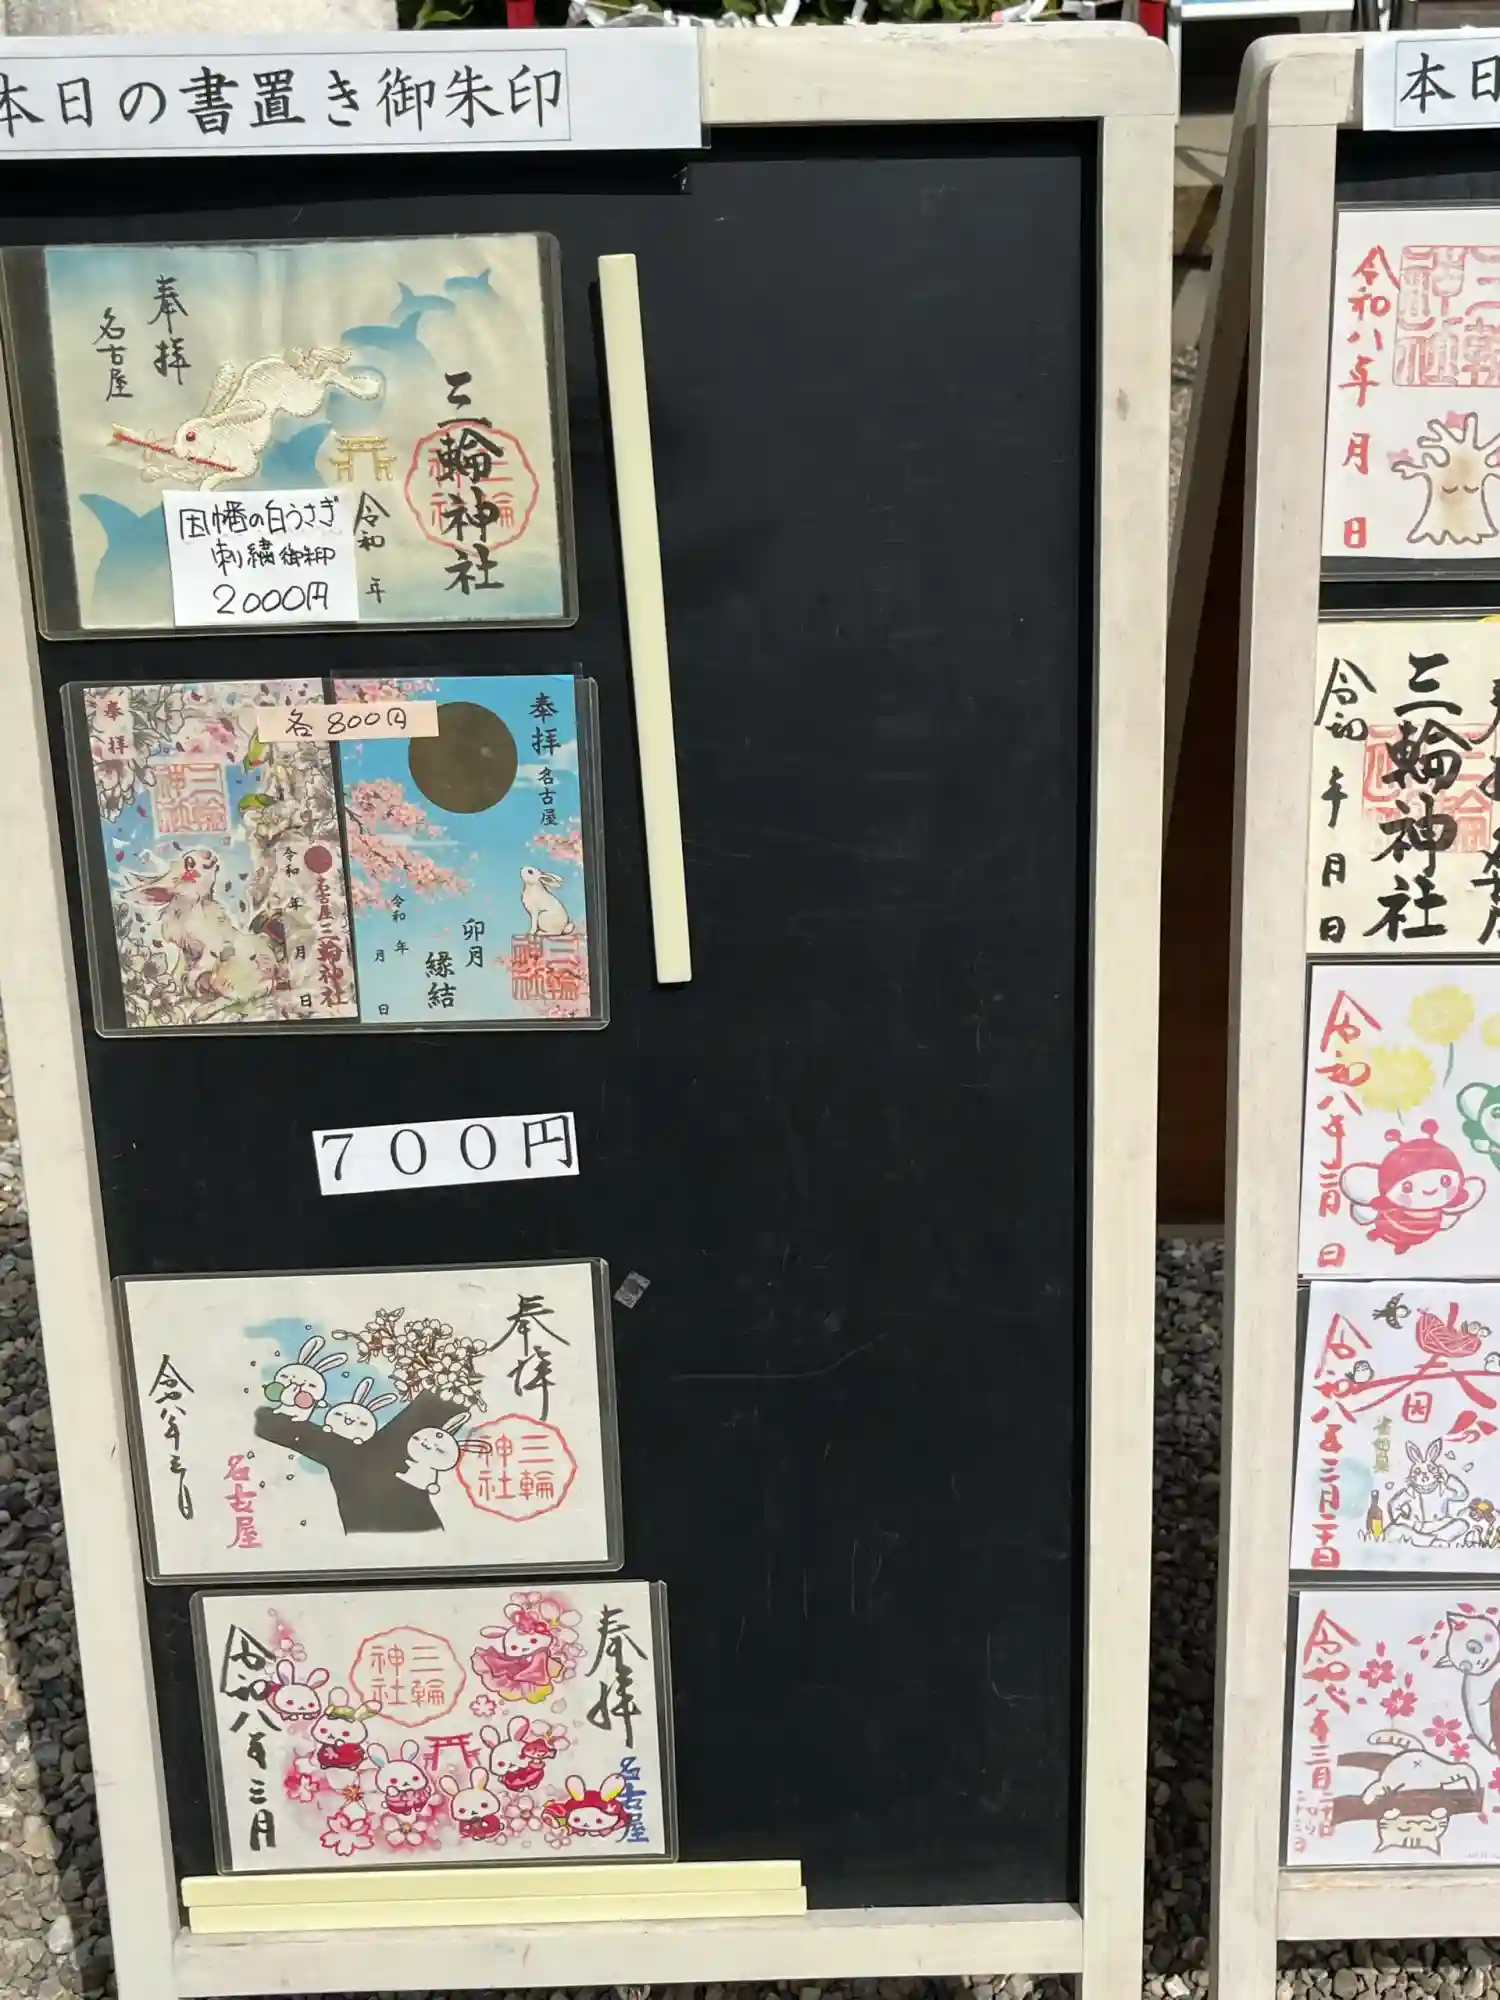 本日の書置き御朱印
奉拝
名古屋
三輪神社
令和 年
因幡の白うさぎ
刺繍御朱印
2000円
各800円
奉拝
三輪神社
令和 年 月 日
名古屋三輪神社
奉拝
名古屋
卯月
縁結
令和 年 月 日
三輪神社
700円
奉拝
三輪神社
名古屋
令和八年三月
奉拝
三輪神社
名古屋
令和八年三月
本日
令和八年 月 日
三輪神社
三輪神社
令和 年 月 日
令和八年三月 日
春分
令和八年三月二十日
令和八年三月二十日